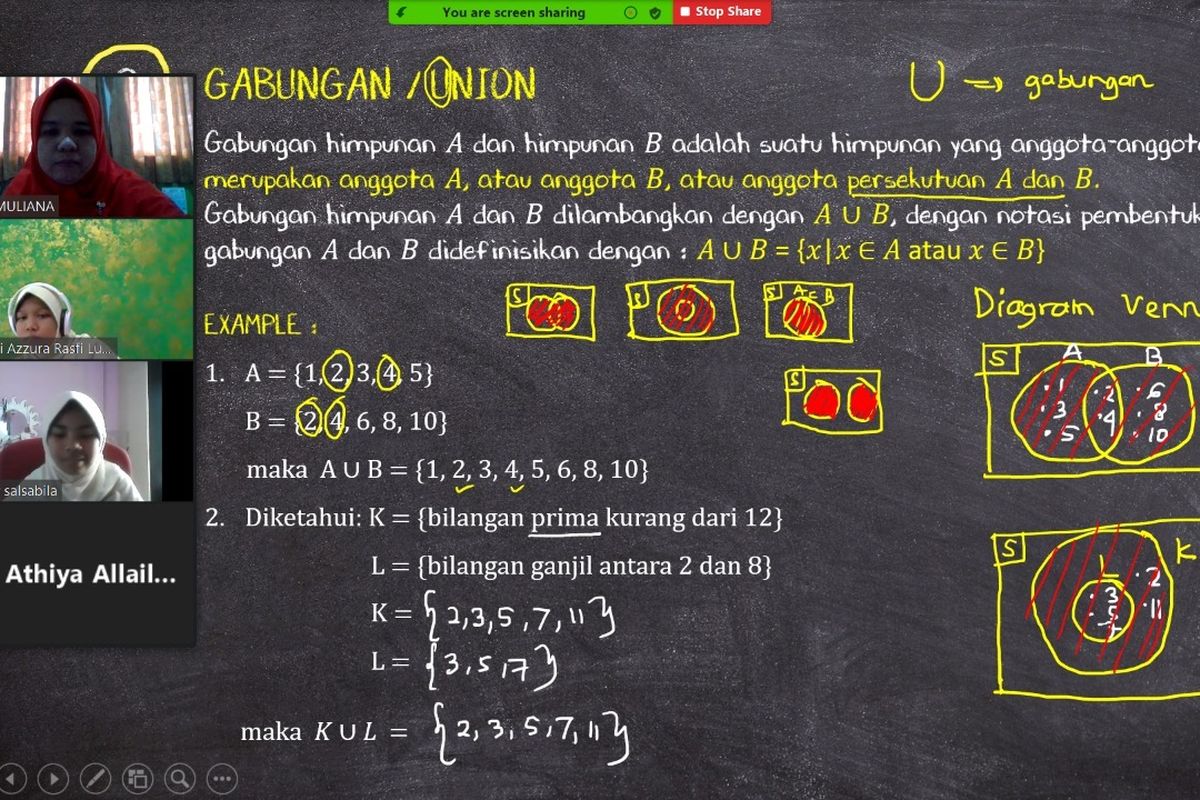 You are screen sharing
Stop Share
GABUNGAN / UNION
U → gabungan
Gabungan himpunan A dan himpunan B adalah suatu himpunan yang
merupakan anggota A, atau anggota B, atau anggota persekutuan A dan B.
Gabungan himpunan A dan B dilambangkan dengan A ∪ B, dengan notasi
gabungan A dan B didefinisikan dengan : A ∪ B = {x|x ∈ A atau x ∈ B}
MULIANA
i Azzura Rasti Lu...
salsabila
Athiya Allail...
EXAMPLE :
S
S
S A ⊂ B
S
Diagram Venn
1. A = {1, 2, 3, 4, 5}
B = {2, 4, 6, 8, 10}
maka A ∪ B = {1, 2, 3, 4, 5, 6, 8, 10}
S A B
.1 .2 .6
.3 .4 .8
.5 .10
2. Diketahui: K = {bilangan prima kurang dari 12}
L = {bilangan ganjil antara 2 dan 8}
K = {2,3,5,7,11}
L = {3,5,7}
maka K ∪ L = {2,3,5,7,11}
S K
L
.3 .2
.5 .11
.7